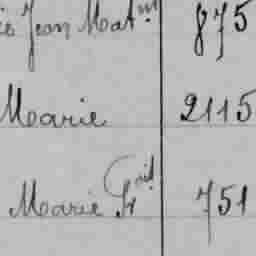 Jean Mat^in 875
Marie 2115
Marie 751